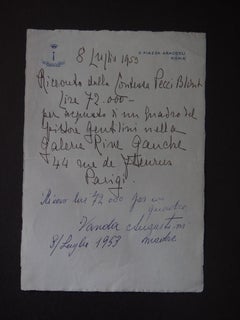 3 PIAZZA ARACOELI
ROMA
8 Luglio 1953
Ricevuto dalla Contessa Pecci Blunt
Lire 72.000 —
per acquisto di un quadro del
pittore Gentilini nella
Galerie Rive Gauche
44 rue de Fleurus
Parigi.
Ricevo lire 72 000 per un
quadro
Vanda
8/Luglio 1953